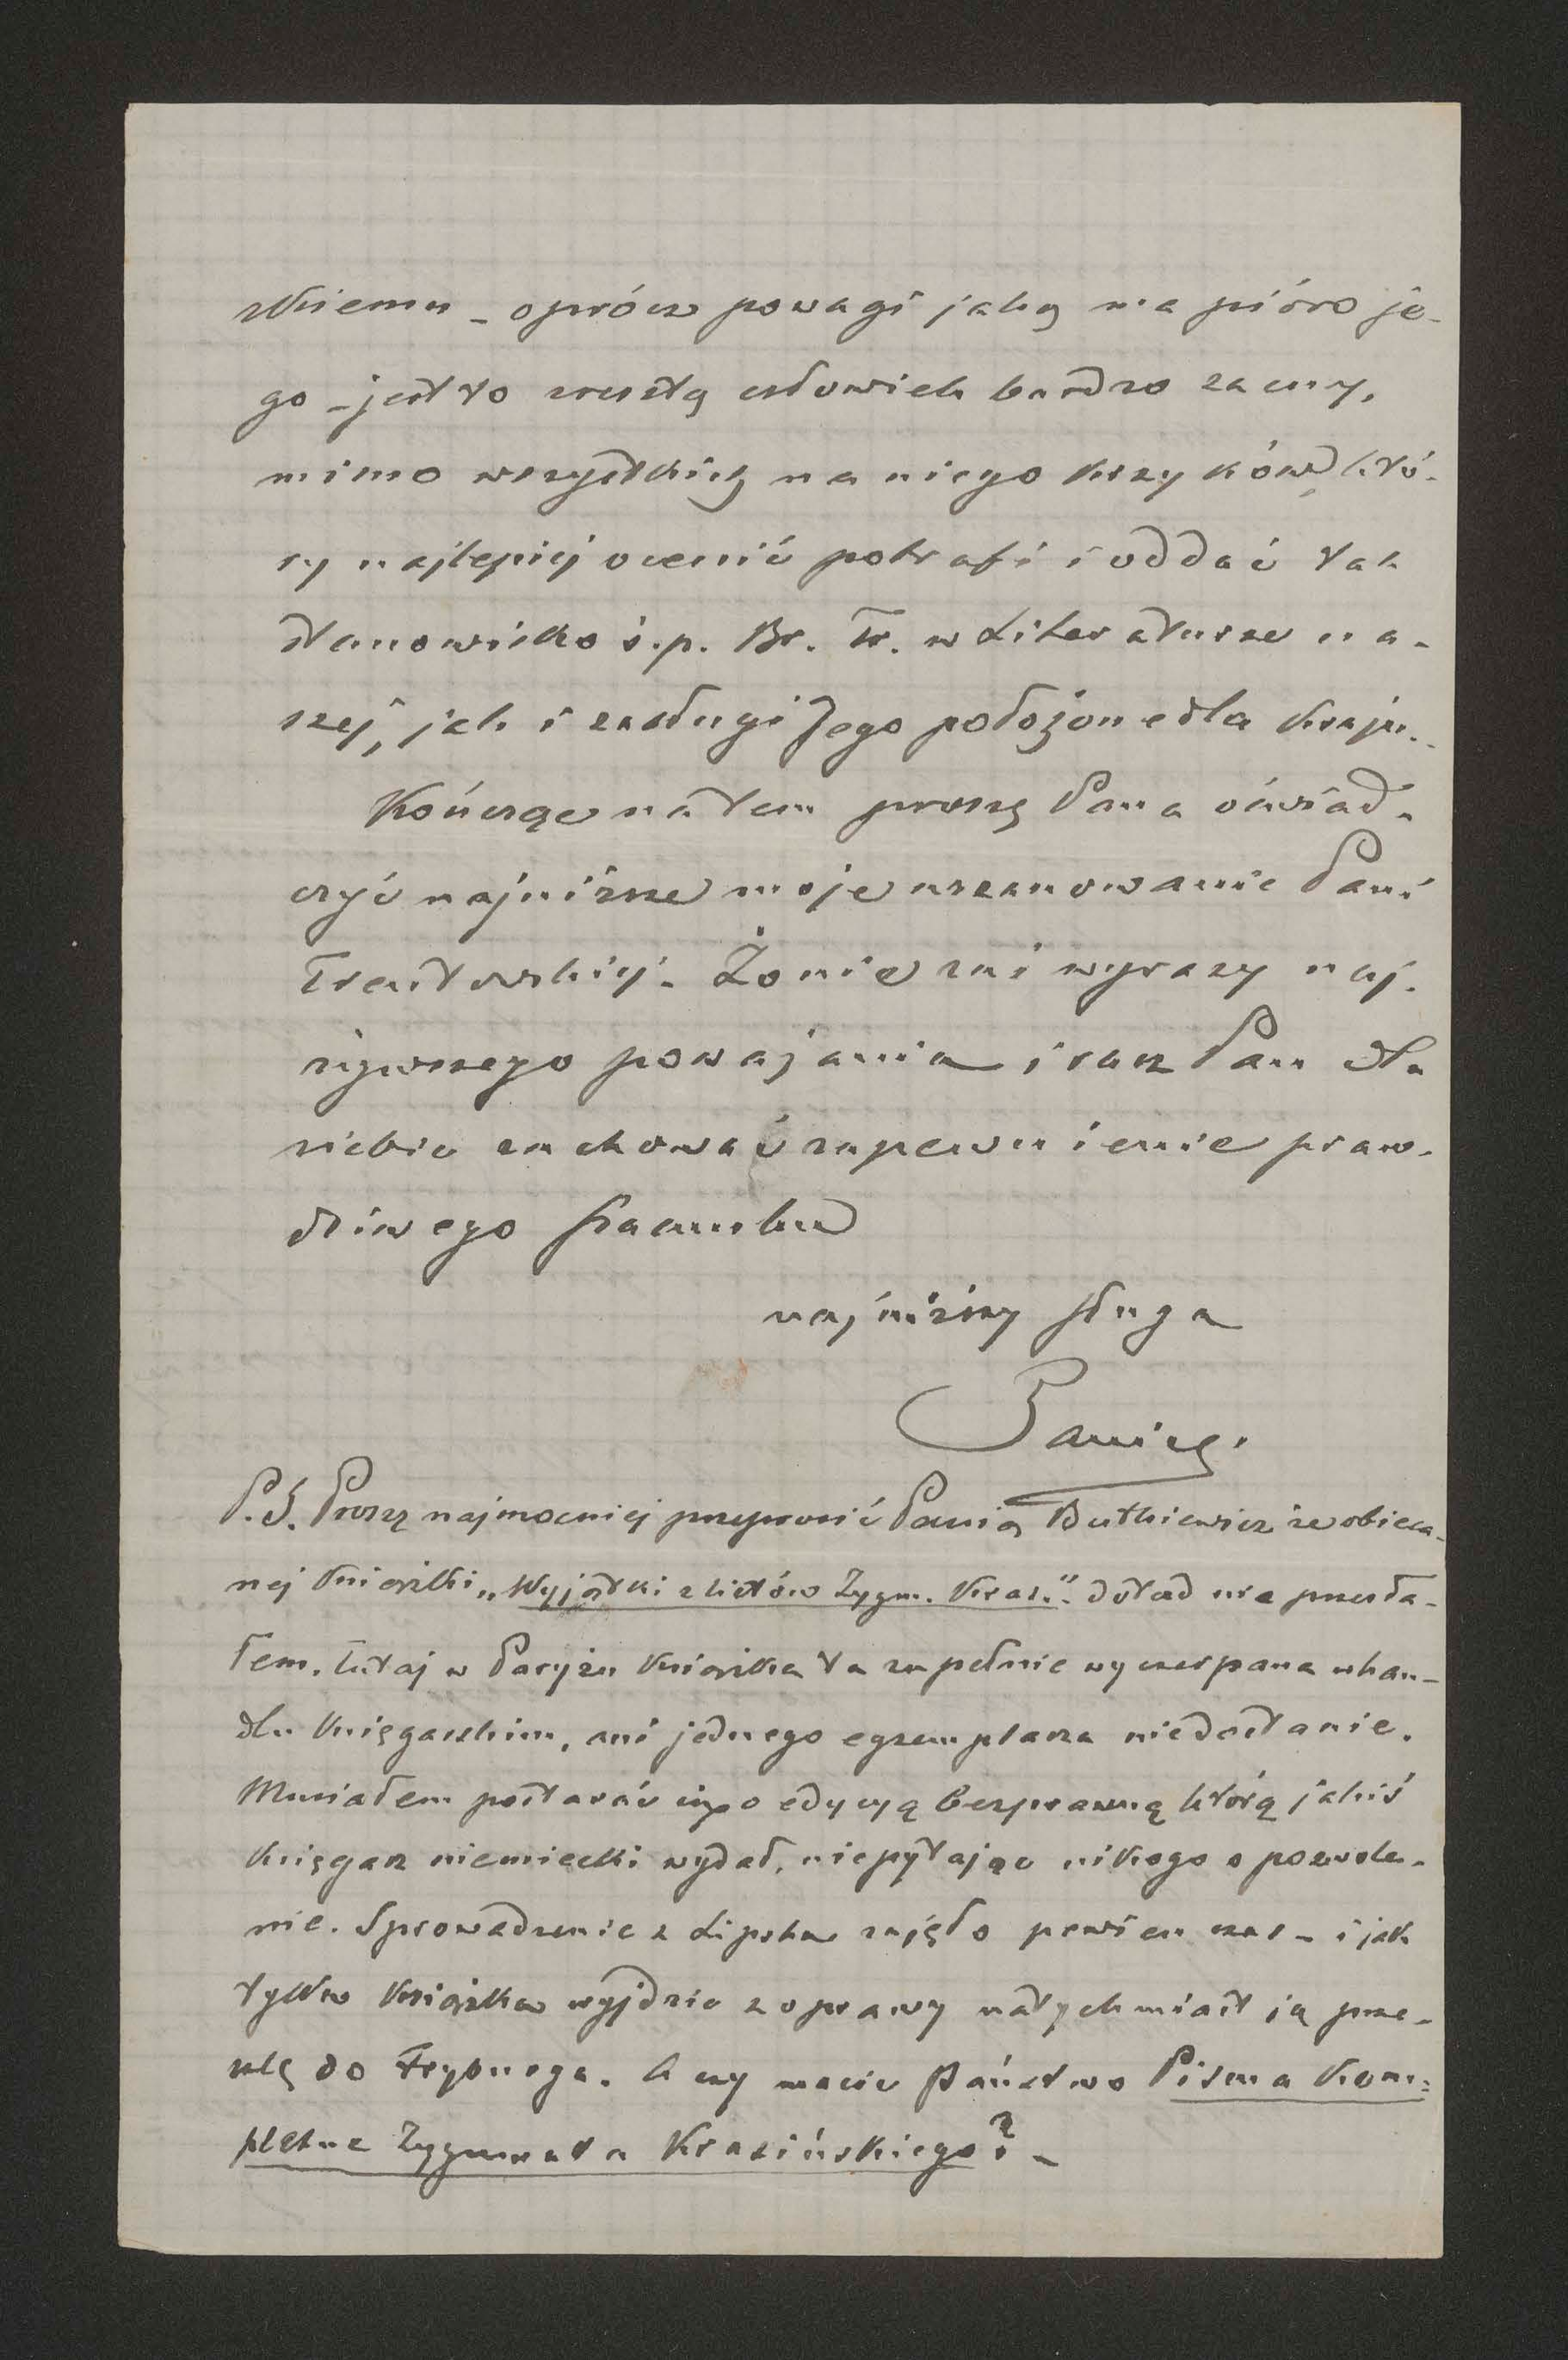 skiemu – oprócz powagi jaką ma pióro je-
go – jest to zresztą człowiek bardzo zacny,
mimo wszystkich na niego krzyków, któ-
ry najlepiej ocenić potrafi i oddać tak
stanowisko ś.p. Br. Tr. w Literaturze na-
szej, jak i zasługi Jego położone dla kraju.
Kończąc na tem proszę Pana oświad-
czyć najniższe moje uszanowanie Pani
Trentowskiej. Żonie zaś wyrazy naj-
żywszego poważania i racz Pan dla
siebie zachować zapewnienie praw-
dziwego szacunku
najniższy sługa
P.S. Proszę najmocniej przeprosić Panią Butkiewicz że obieca-
nej książki „Wyjątki z listów Zygm. Kras.” dotąd nie przesła-
łem. Tutaj w Paryżu książka ta zupełnie wyczerpana w han-
dlu księgarskim, ani jednego egzemplarza niedostanie.
Musiałem postarać się o edycyą bezprawną którą jakiś
księgarz niemiecki wydał, niepytając nikogo o pozwole-
nie. Sprowadzenie z Lipska zajęło pewien czas – i jak
tylko książka wyjdzie z oprawy natychmiast ją prze-
szlę do Fryburga. A czy macie Państwo Pisma kom-
pletne Zygmunta Krasińskiego? –